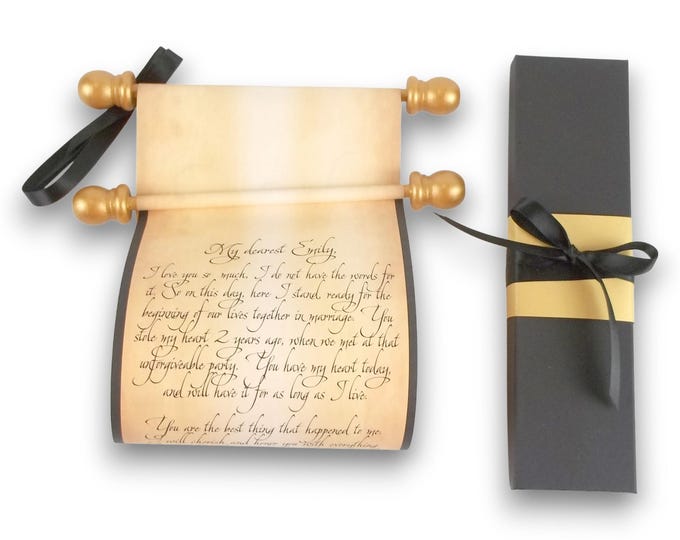 My dearest Emily,
I love you so much, I do not have the words for
it. So on this day, here I stand, ready for the
beginning of our lives together in marriage. You
stole my heart 2 years ago, when we met at that
unforgiveable party. You have my heart today,
and will have it for as long as I live.
You are the best thing that happened to me.
I will cherish and honor you with everything